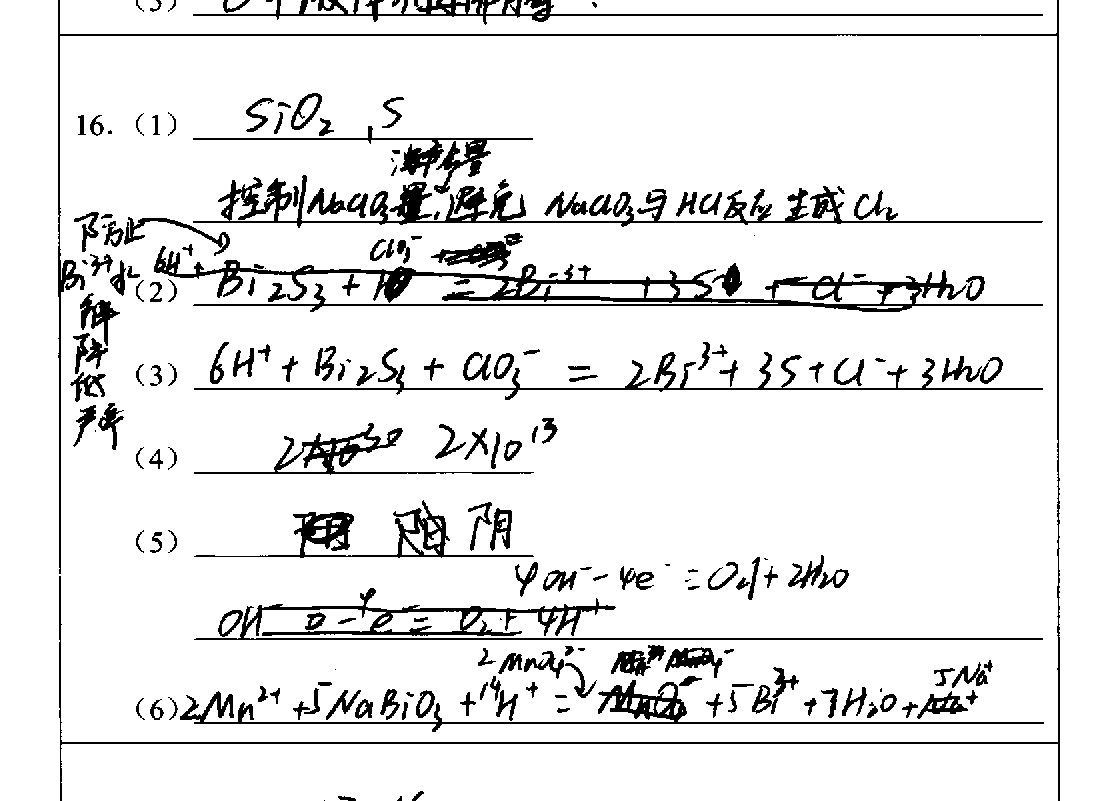 (3)
16. (1) SiO₂, S
控制NaClO₃量,避免 NaClO₃与HCl反应生成Cl₂
防止Bi³⁺水解降低产率
(2)
(3) 6H⁺ + Bi₂S₃ + ClO₃⁻ = 2Bi³⁺ + 3S + Cl⁻ + 3H₂O
(4) 2×10¹³
(5) 阳 阴
4OH⁻ - 4e⁻ = O₂↑ + 2H₂O
(6) 2Mn²⁺ + 5NaBiO₃ + 14H⁺ = 2MnO₄⁻ + 5Bi³⁺ + 7H₂O + 5Na⁺